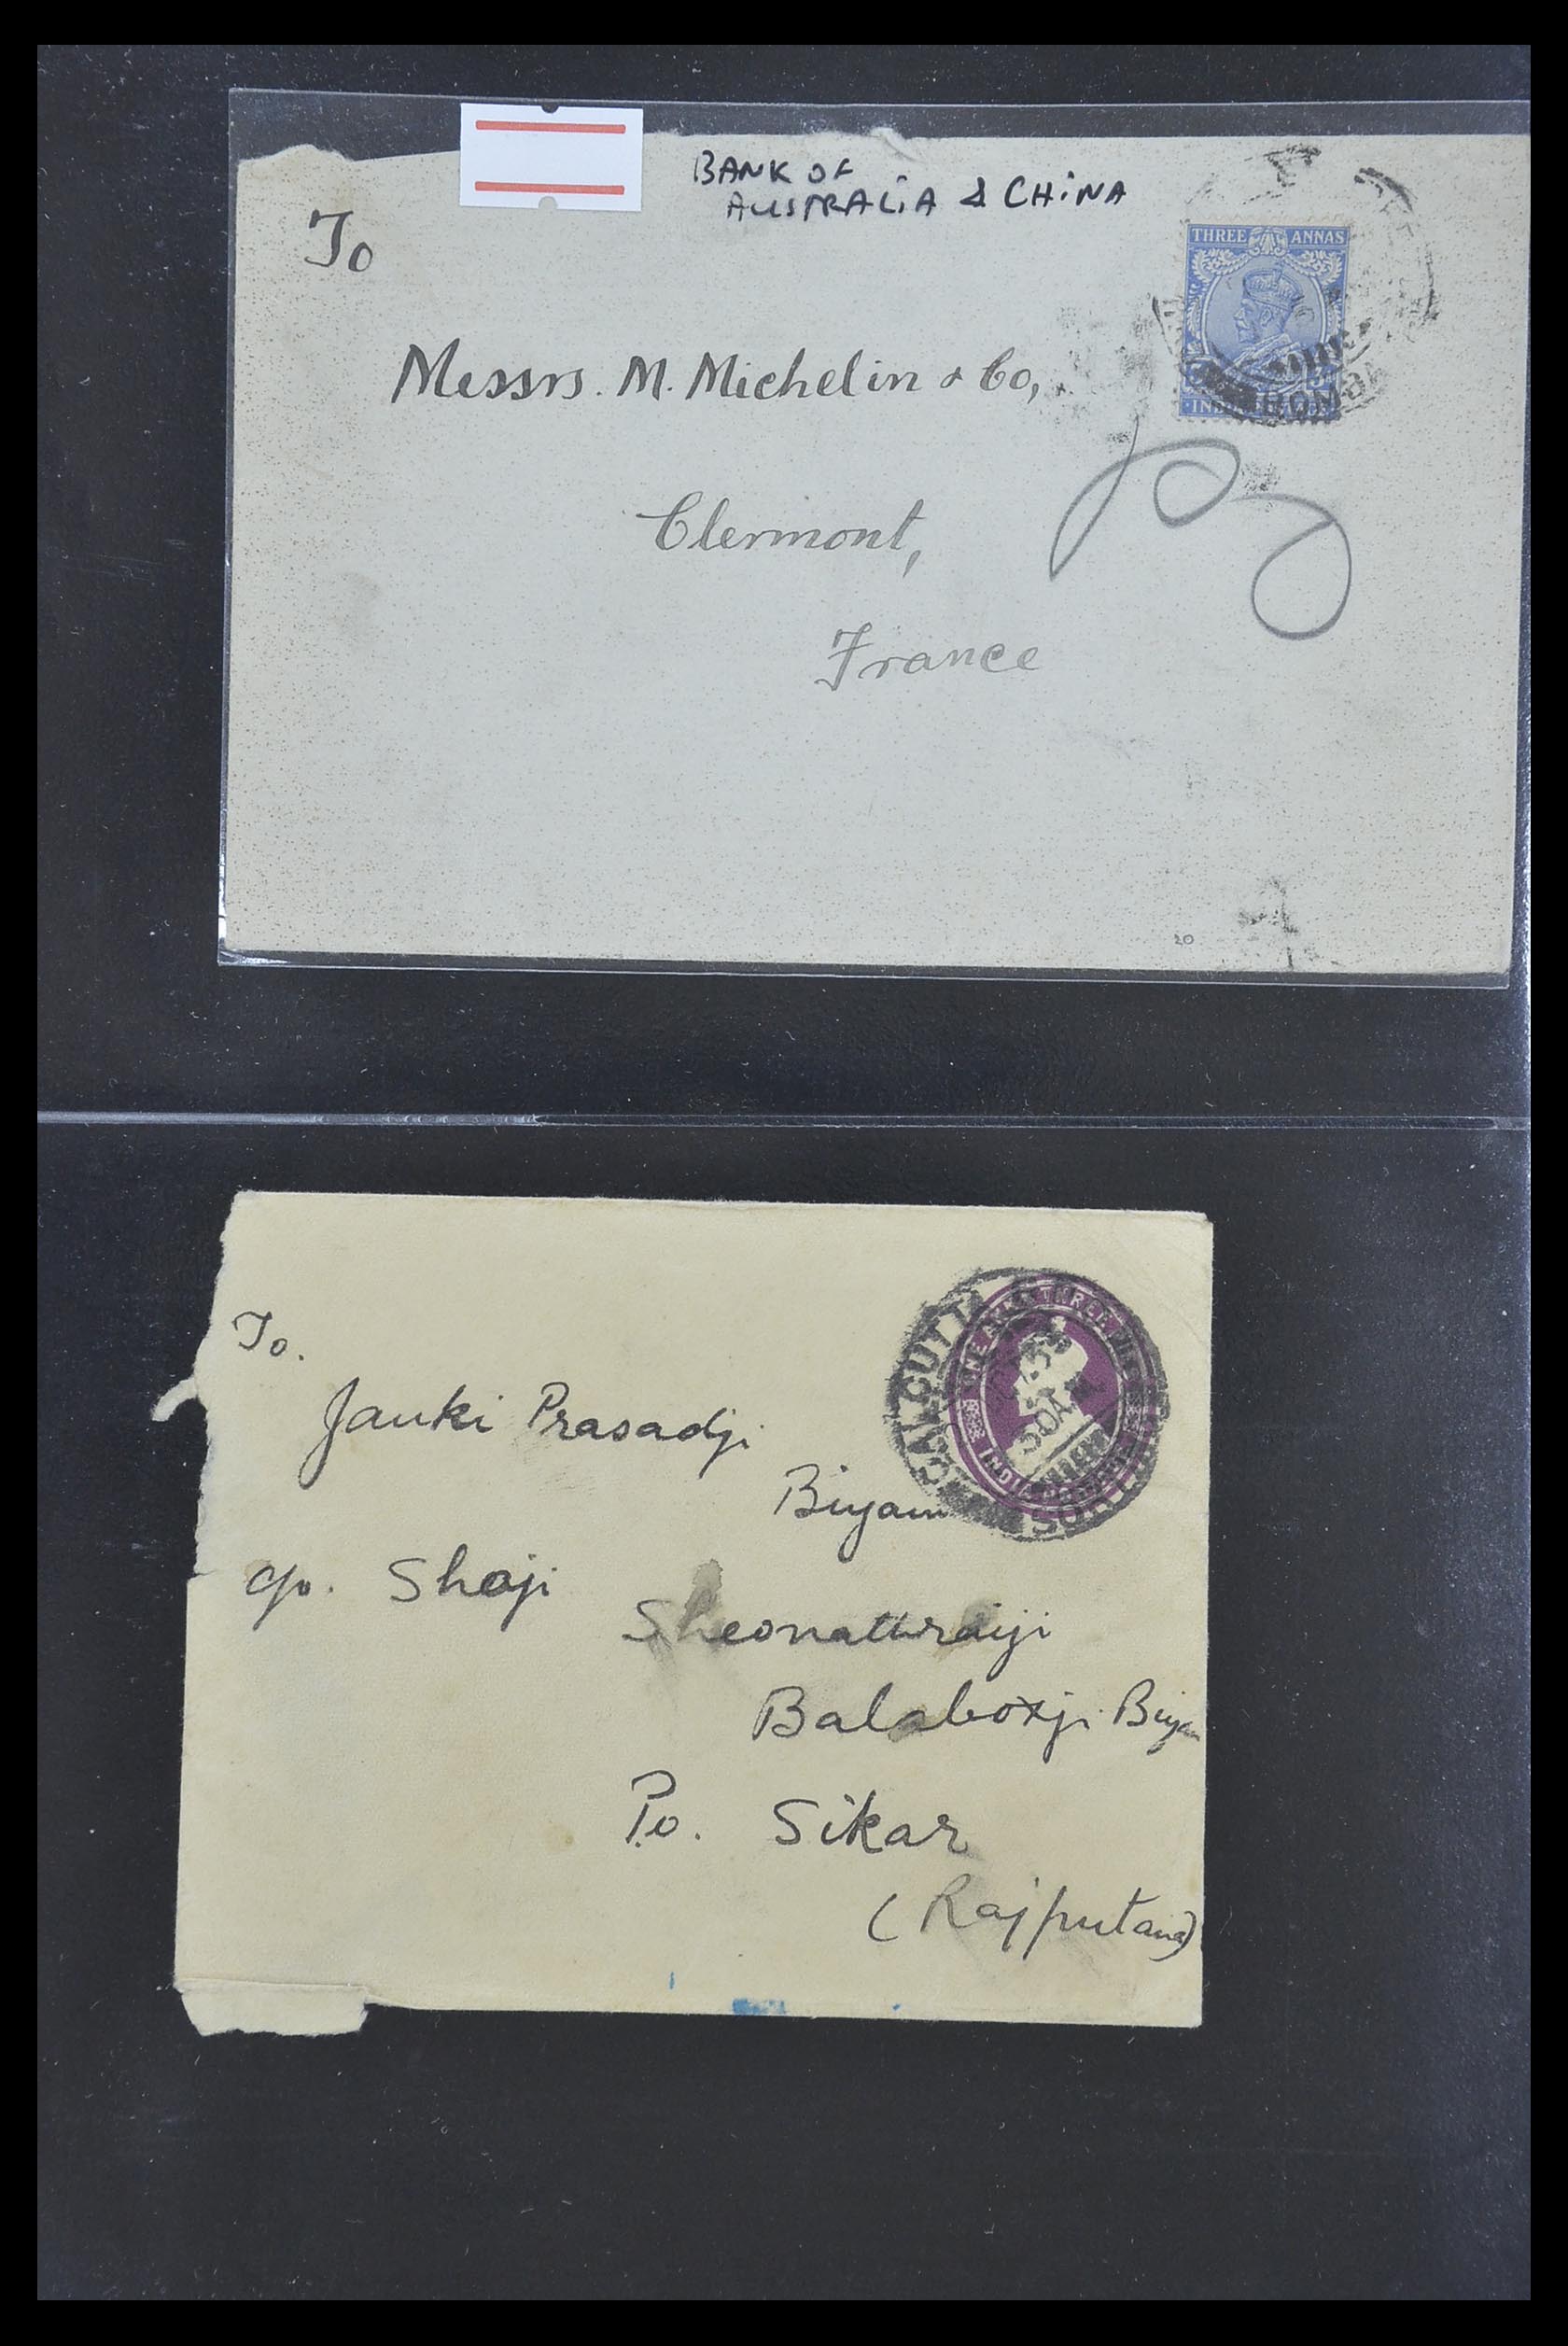 BANK OF
AUSTRALIA & CHINA
To
THREE ANNAS
Messrs. M. Michelin & Co,
Clermont,
France
20
To.
CALCUTTA
INDIA
Janki Prasadji
Biyani
c/o. Shaji
Sheonathraiji
Balaboxji Biyani
P.o. Sikar
(Rajputana)